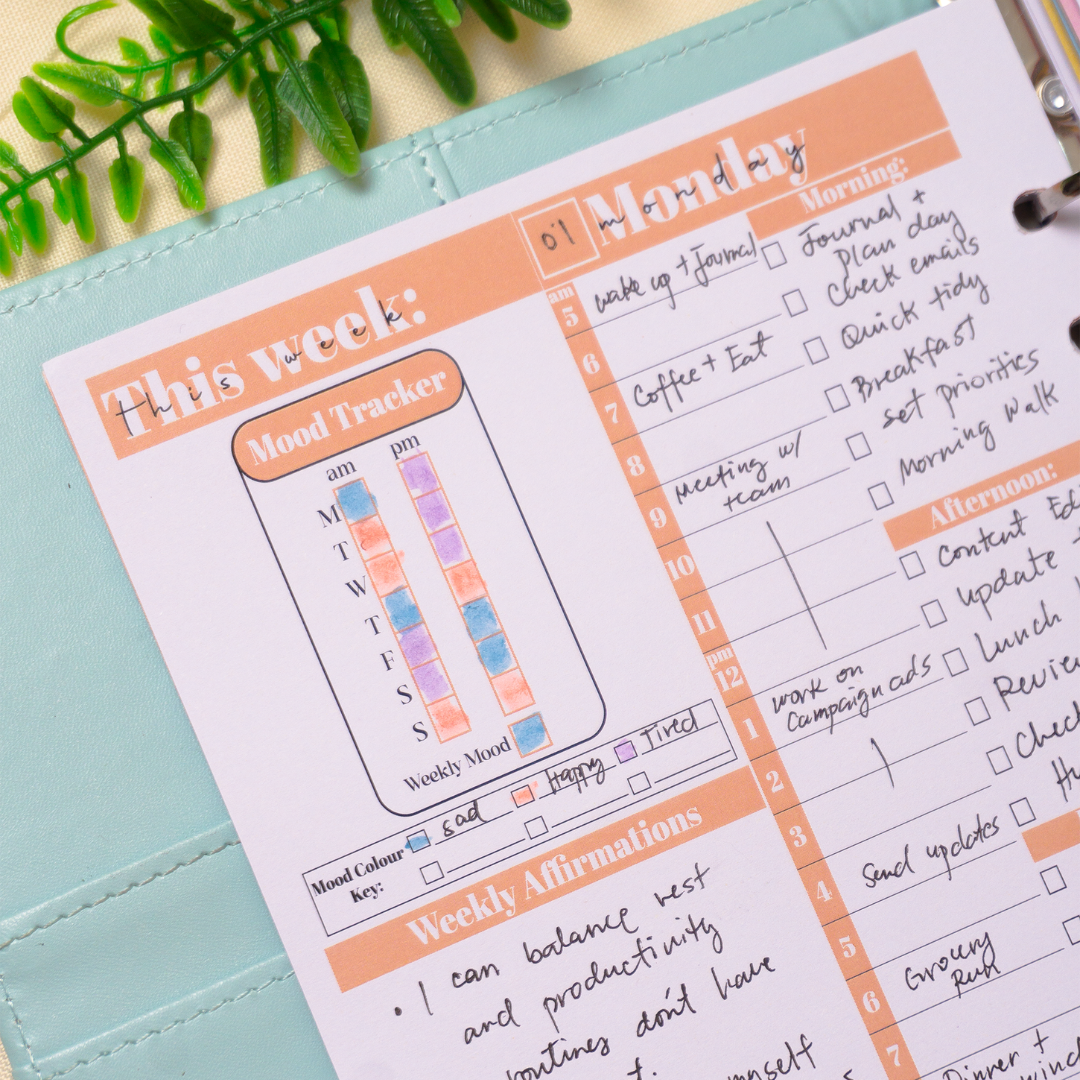 This week:
this week
Mood Tracker
am pm
M
T
W
T
F
S
S
Weekly Mood
Mood Colour Key:
sad
Happy
Tired
Weekly Affirmations
• I can balance rest
and productivity
routines don't have
myself
01
Monday
monday
am
5 wake up + Journal
6
7 Coffee + Eat
8
9 Meeting w/
team
10
11
pm
12
1 work on
Campaign ads
2
3
4 Send updates
5
6 Grocery
Run
7
Dinner +
Morning:
Journal +
plan day
Check emails
Quick tidy
Breakfast
set priorities
Morning Walk
Afternoon:
Content
update
Lunch